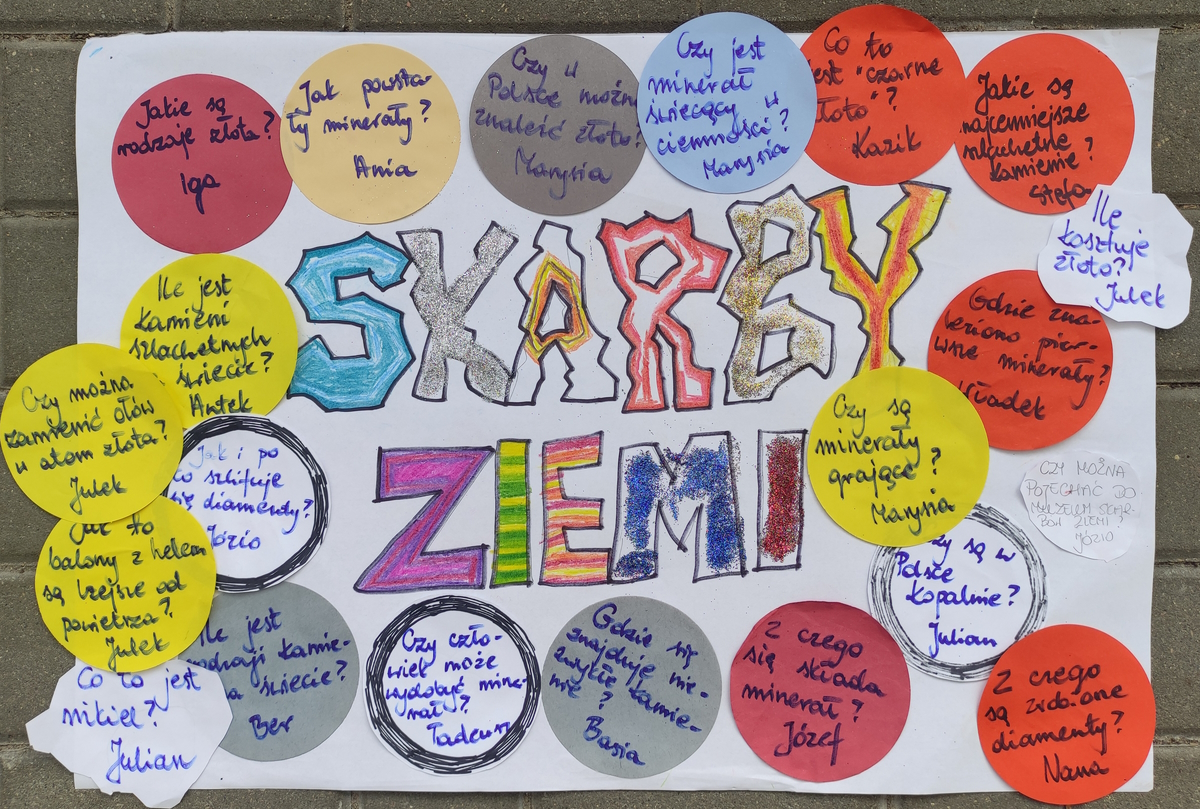 Jakie są
rodzaje złota?
Iga
Jak powsta-
ły minerały?
Ania
Czy w
Polsce można
znaleźć złoto?
Marysia
Czy jest
minerał
świecący w
ciemności?
Marysia
Co to
jest "czarne
złoto"?
Kazik
Jakie są
najcenniejsze
szlachetne
kamienie?
Stefa
Ile
kosztuje
złoto?
Julek
SKARBY
ZIEMI
Ile jest
kamieni
szlachetnych
świecie?
Antek
Gdzie zna-
leziono pier-
wsze minerały?
Władek
Czy można
zamienić ołów
w atom złota?
Julek
Jak i po
co szlifuje
się diamenty?
Józio
Czy są
minerały
grające?
Marysia
CZY MOŻNA
POJECHAĆ DO
MUZEUM SKAR-
BÓW ZIEMI?
JÓZIO
Jak to
balony z helem
są lżejsze od
powietrza?
Julek
Czy są w
Polsce
kopalnie?
Julian
Ile jest
rodzaji kamie-
na świecie?
Ber
Czy czło-
wiek może
wydobyć mine-
rały?
Tadeusz
Gdzie się
znajduje nie-
zwykłe kamie-
nie?
Basia
Z czego
się składa
minerał?
Józef
Z czego
są zrobione
diamenty?
Nana
Co to jest
nikiel?
Julian